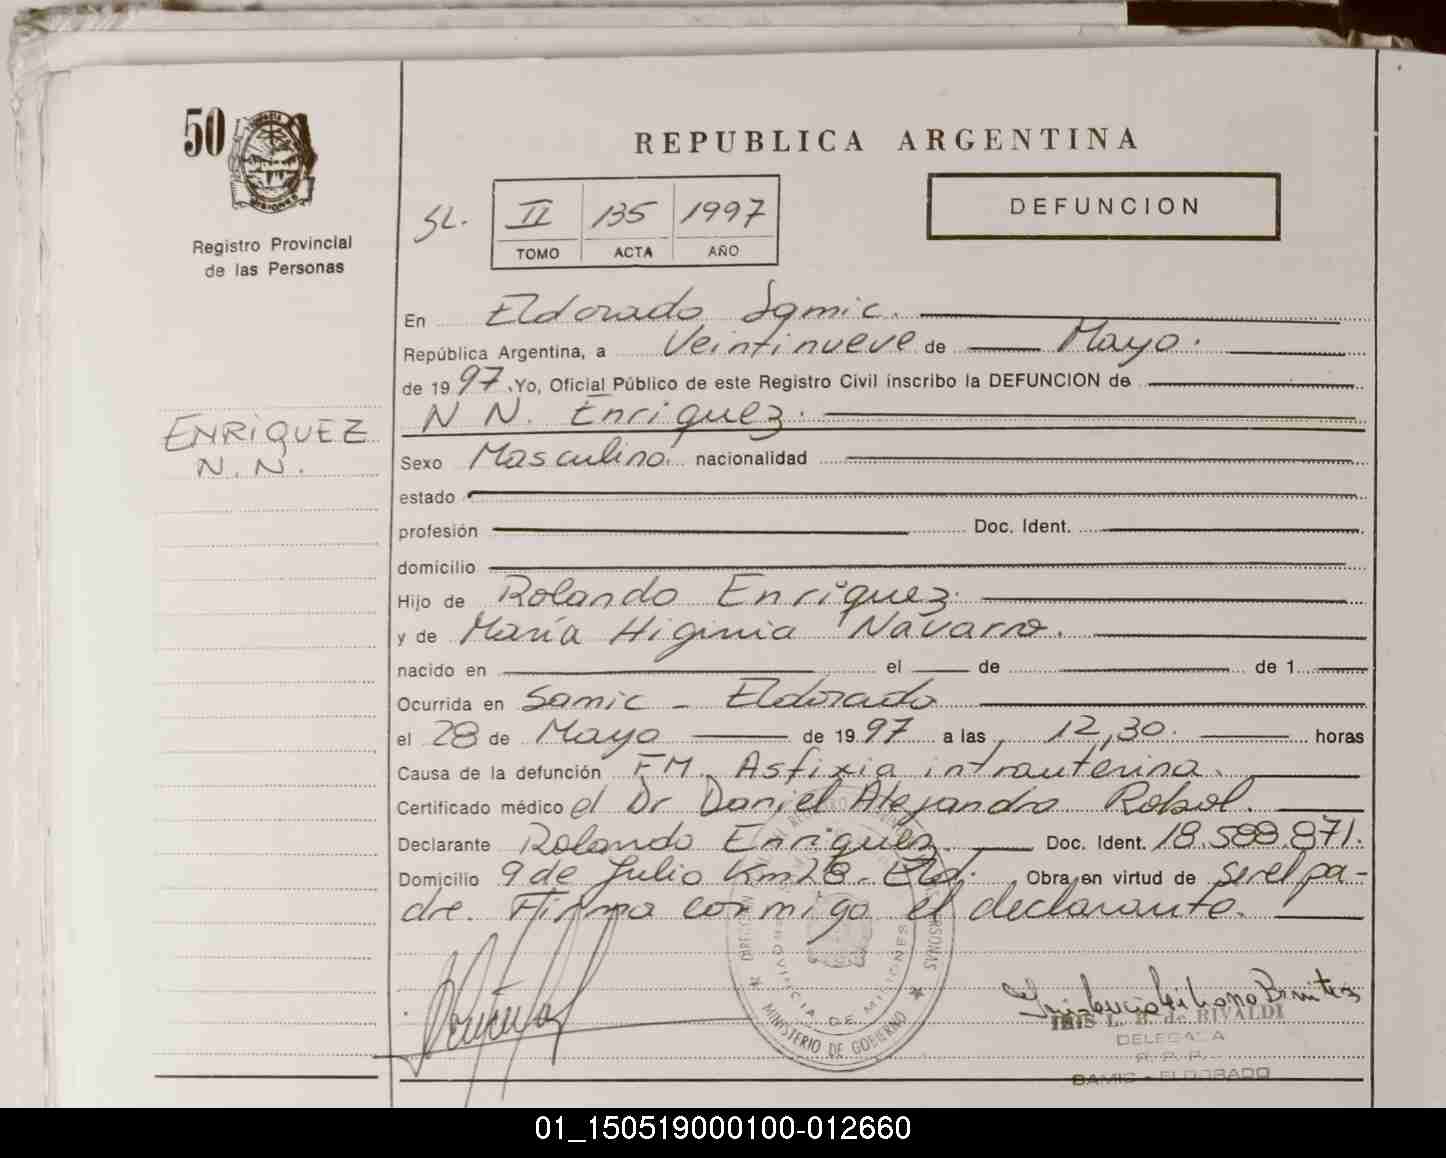 50
Registro Provincial
de las Personas
ENRIQUEZ
N.N.
REPUBLICA ARGENTINA
SL. II 135 1997
TOMO ACTA AÑO
DEFUNCION
En Eldorado Samic.
República Argentina, a Veintinueve de Mayo.
de 1997. Yo, Oficial Público de este Registro Civil inscribo la DEFUNCION de
N N. Enriquez.
Sexo Masculino. nacionalidad
estado
profesión Doc. Ident.
domicilio
Hijo de Rolando Enriquez.
y de María Higinia Navarro.
nacido en el de de 1
Ocurrida en Samic - Eldorado
el 28 de Mayo de 1997 a las 12,30. horas
Causa de la defunción FM. Asfixia intrauterina.
Certificado médico el Dr Daniel Alejandro
Declarante Rolando Enriquez. Doc. Ident. 18.588.871.
Domicilio 9 de Julio Km 28 - Eld. Obra en virtud de ser el pa-
dre. Firma conmigo el declarante.
PROVINCIA DE MISIONES
MINISTERIO DE GOBIERNO
IRIS L. B. de RIVALDI
DELEGADA
R. P. P.
SAMIC - ELDORADO
01_150519000100-012660